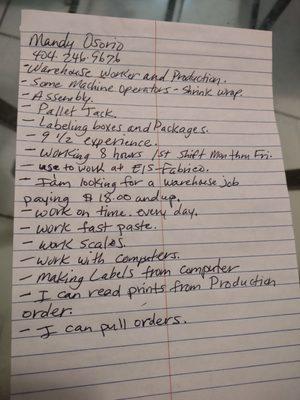 Mandy Osorio
404-246-9676
- Warehouse Worker and Production.
- Some Machine Operators - Shrink wrap.
- Assembly.
- Pallet Task.
- Labeling boxes and Packages.
- 9 1/2 experience.
- Working 8 hours 1st Shift Mon thru Fri.
- use to work at EIS-Fabrico.
- I am looking for a warehouse job
paying $18.00 and up.
- work on time. every day.
- work fast paste.
- work scales.
- work with computers.
- Making Labels from computer
- I can read prints from Production
order.
- I can pull orders.